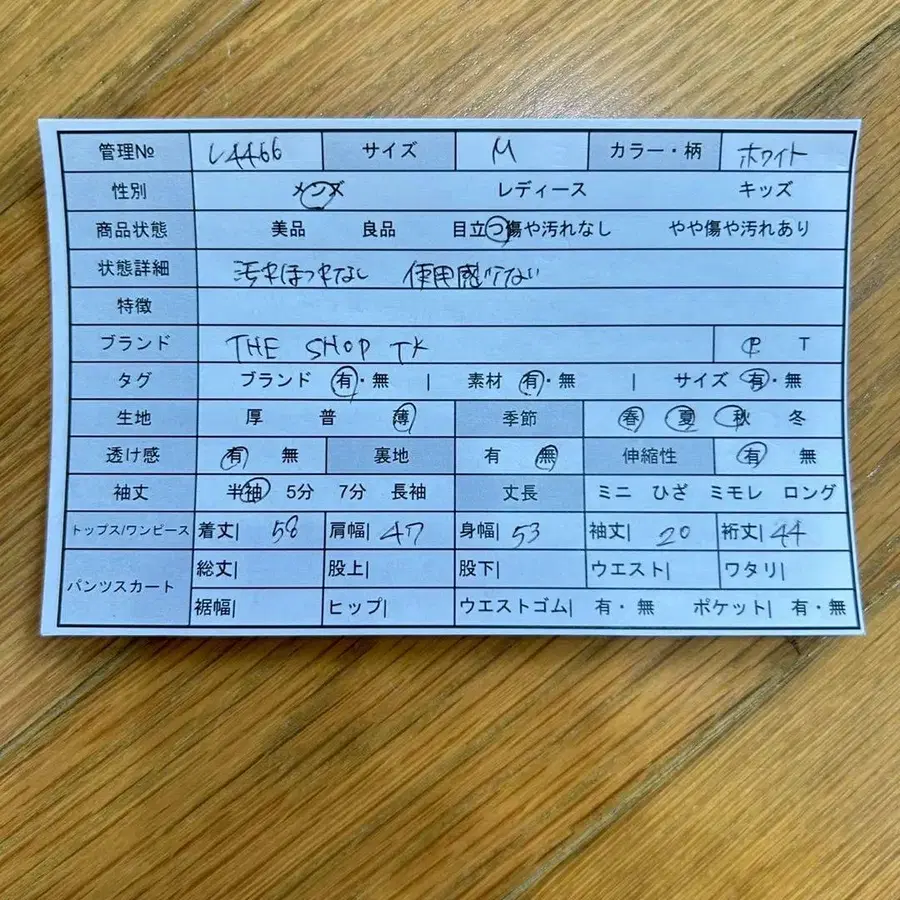 管理№ L4466 サイズ M カラー・柄 ホワイト
性別 メンズ レディース キッズ
商品状態 美品 良品 目立つ傷や汚れなし やや傷や汚れあり
状態詳細 汚れほつれなし 使用感少ない
特徴
ブランド THE SHOP TK P T
タグ ブランド 有・無 | 素材 有・無 | サイズ 有・無
生地 厚 普 薄 季節 春 夏 秋 冬
透け感 有 無 裏地 有 無 伸縮性 有 無
袖丈 半袖 5分 7分 長袖 丈長 ミニ ひざ ミモレ ロング
トップス/ワンピース 着丈| 58 肩幅| 47 身幅| 53 袖丈| 20 裄丈| 44
パンツスカート 総丈| 股上| 股下| ウエスト| ワタリ|
裾幅| ヒップ| ウエストゴム| 有・無 ポケット| 有・無